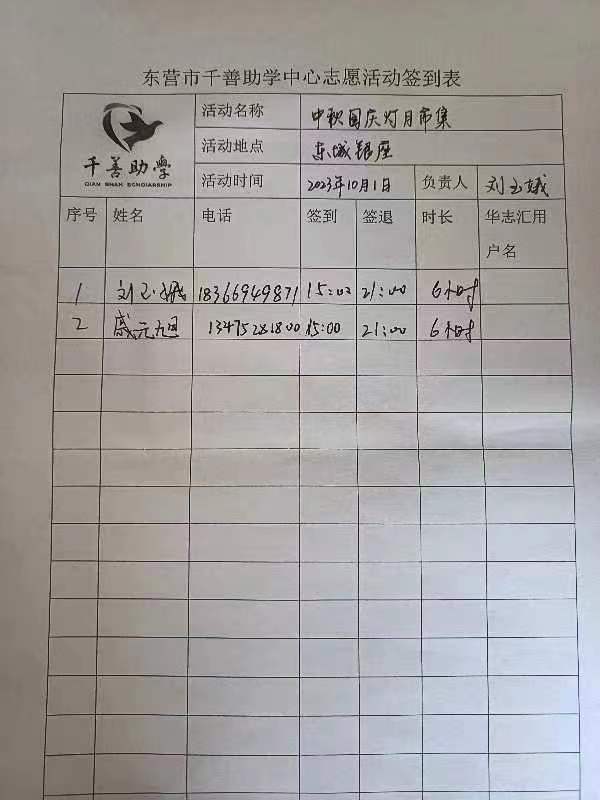 东营市千善助学中心志愿活动签到表
千善助学
QIAN SHAN SCHOLARSHIP
活动名称 中秋国庆灯月市集
活动地点 东城银座
活动时间 2023年10月1日 负责人 刘玉娥
序号 姓名 电话 签到 签退 时长 华志汇用户名
1 刘玉娥 18366949871 15:00 21:00 6小时
2 13475281800 15:00 21:00 6小时